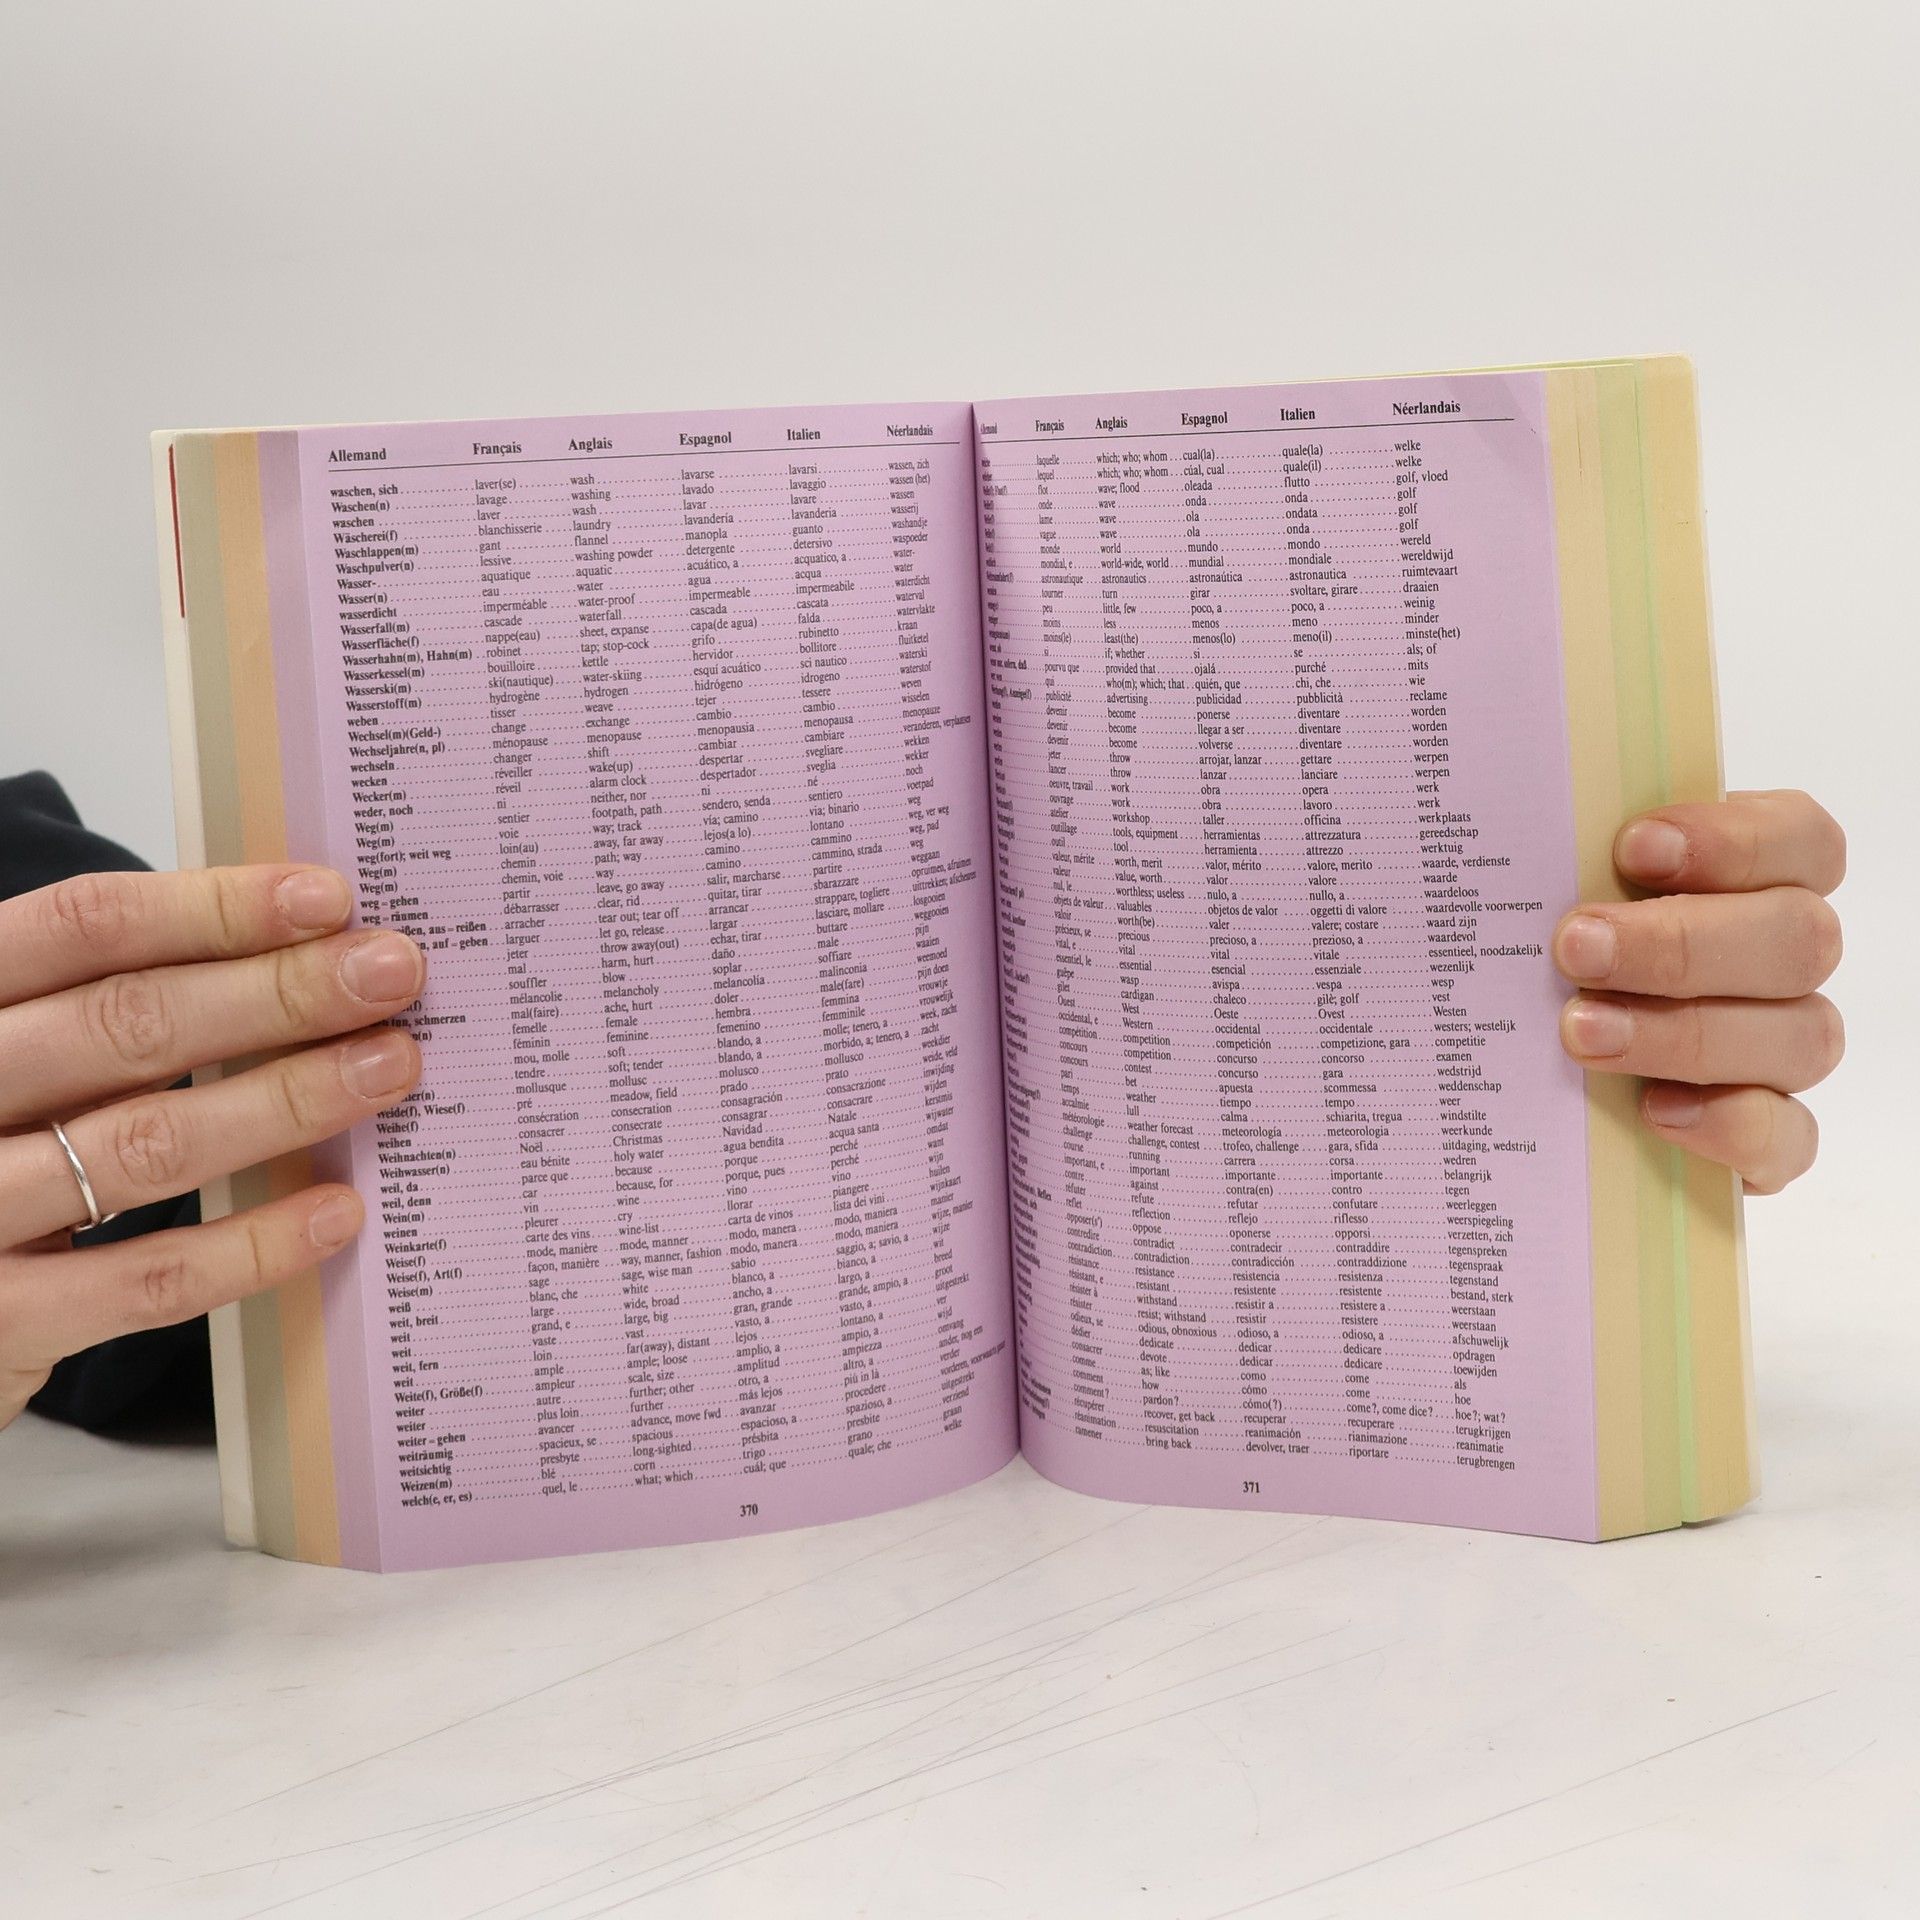 Allemand Français Anglais Espagnol Italien Néerlandais
waschen, sich laver(se) wash lavarse lavarsi wassen, zich
Waschen(n) lavage washing lavado lavaggio wassen (het)
waschen laver wash lavar lavare wassen
Wäscherei(f) blanchisserie laundry lavandería lavanderia wasserij
Waschlappen(m) gant flannel manopla guanto washandje
Waschpulver(n) lessive washing powder detergente detersivo waspoeder
Wasser- aquatique aquatic acuático, a acquatico, a water-
Wasser(n) eau water agua acqua water
wasserdicht imperméable water-proof impermeable impermeabile waterdicht
Wasserfall(m) cascade waterfall cascada cascata waterval
Wasserfläche(f) nappe(eau) sheet, expanse capa(de agua) falda watervlakte
Wasserhahn(m), Hahn(m) robinet tap; stop-cock grifo rubinetto kraan
Wasserkessel(m) bouilloire kettle hervidor bollitore fluitketel
Wasserski(m) ski(nautique) water-skiing esquí acuático sci nautico waterski
Wasserstoff(m) hydrogène hydrogen hidrógeno idrogeno waterstof
weben tisser weave tejer tessere weven
Wechsel(m)(Geld-) change exchange cambio cambio wisselen
Wechseljahre(n, pl) ménopause menopause menopausia menopausa menopauze
wechseln changer shift cambiar cambiare veranderen, verplaatsen
wecken réveiller wake(up) despertar svegliare wekken
Wecker(m) réveil alarm clock despertador sveglia wekker
weder, noch ni neither, nor ni né noch
Weg(m) sentier footpath, path sendero, senda sentiero voetpad
Weg(m) voie way; track vía; camino via; binario weg
weg(fort); weit weg loin(au) away, far away lejos(a lo) lontano weg, ver weg
Weg(m) chemin path; way camino cammino weg, pad
Weg(m) chemin, voie way camino cammino, strada weg
weg=gehen partir leave, go away salir, marcharse partire weggaan
weg=räumen débarrasser clear, rid quitar, tirar sbarazzare opruimen, afruimen
eißen, aus=reißen arracher tear out; tear off arrancar strappare, togliere uittrekken; afscheuren
en, auf=geben larguer let go, release largar lasciare, mollare losgooien
jeter throw away(out) echar, tirar buttare weggooien
mal harm, hurt daño male pijn
souffler blow soplar soffiare waaien
(f) mélancolie melancholy melancolía malinconia weemoed
tun, schmerzen mal(faire) ache, hurt doler male(fare) pijn doen
(n) femelle female hembra femmina vrouwtje
féminin feminine femenino femminile vrouwelijk
mou, molle soft blando, a molle; tenero, a week, zacht
tendre soft; tender blando, a morbido, a; tenero, a zacht
ier(n) mollusque mollusc molusco mollusco weekdier
Weide(f), Wiese(f) pré meadow, field prado prato weide, veld
Weihe(f) consécration consecration consagración consacrazione inwijding
weihen consacrer consecrate consagrar consacrare wijden
Weihnachten(n) Noël Christmas Navidad Natale kerstmis
Weihwasser(n) eau bénite holy water agua bendita acqua santa wijwater
weil, da parce que because porque perché omdat
weil, denn car because, for porque, pues perché want
Wein(m) vin wine vino vino wijn
weinen pleurer cry llorar piangere huilen
Weinkarte(f) carte des vins wine-list carta de vinos lista dei vini wijnkaart
Weise(f) mode, manière mode, manner modo, manera modo, maniera manier
Weise(f), Art(f) façon, manière way, manner, fashion modo, manera modo, maniera wijze, manier
Weise(m) sage sage, wise man sabio saggio, a; savio, a wijze
weiß blanc, che white blanco, a bianco, a wit
weit, breit large wide, broad ancho, a largo, a breed
weit grand, e large, big gran, grande grande, ampio, a groot
weit vaste vast vasto, a vasto, a uitgestrekt
weit, fern loin far(away), distant lejos lontano, a ver
weit ample ample; loose amplio, a ampio, a wijd
Weite(f), Größe(f) ampleur scale, size amplitud ampiezza omvang
weiter autre further; other otro, a altro, a ander, nog een
weiter plus loin further más lejos più in là verder
weiter=gehen avancer advance, move fwd avanzar procedere vorderen, voorwaarts gaan
weiträumig spacieux, se spacious espacioso, a spazioso, a uitgestrekt
weitsichtig presbyte long-sighted présbita presbite verziend
Weizen(m) blé corn trigo grano graan
welch(e, er, es) quel, le what; which cuál; que quale; che welke
370
Allemand Français Anglais Espagnol Italien Néerlandais
laquelle which; who; whom cual(la) quale(la) welke
lequel which; who; whom cúal, cual quale(il) welke
flot wave; flood oleada flutto golf, vloed
onde wave onda onda golf
lame wave ola ondata golf
vague wave ola onda golf
monde world mundo mondo wereld
mondial, e world-wide, world mundial mondiale wereldwijd
astronautique astronautics astronaútica astronautica ruimtevaart
tourner turn girar svoltare, girare draaien
peu little, few poco, a poco, a weinig
moins less menos meno minder
moins(le) least(the) menos(lo) meno(il) minste(het)
si if; whether si se als; of
pourvu que provided that ojalá purché mits
qui who(m); which; that quién, que chi, che wie
publicité advertising publicidad pubblicità reclame
devenir become ponerse diventare worden
devenir become llegar a ser diventare worden
devenir become volverse diventare worden
jeter throw arrojar, lanzar gettare werpen
lancer throw lanzar lanciare werpen
oeuvre, travail work obra opera werk
ouvrage work obra lavoro werk
atelier workshop taller officina werkplaats
outillage tools, equipment herramientas attrezzatura gereedschap
outil tool herramienta attrezzo werktuig
valeur, mérite worth, merit valor, mérito valore, merito waarde, verdienste
valeur value, worth valor valore waarde
nul, le worthless; useless nulo, a nullo, a waardeloos
objets de valeur valuables objetos de valor oggetti di valore waardevolle voorwerpen
valoir worth(be) valer valere; costare waard zijn
précieux, se precious precioso, a prezioso, a waardevol
vital, e vital vital vitale essentieel, noodzakelijk
essentiel, le essential esencial essenziale wezenlijk
guêpe wasp avispa vespa wesp
gilet cardigan chaleco gilè; golf vest
Ouest West Oeste Ovest Westen
occidental, e Western occidental occidentale westers; westelijk
compétition competition competición competizione, gara competitie
concours competition concurso concorso examen
concours contest concurso gara wedstrijd
pari bet apuesta scommessa weddenschap
temps weather tiempo tempo weer
accalmie lull calma schiarita, tregua windstilte
météorologie weather forecast meteorología meteorologia weerkunde
challenge challenge, contest trofeo, challenge gara, sfida uitdaging, wedstrijd
course running carrera corsa wedren
important, e important importante importante belangrijk
contre against contra(en) contro tegen
réfuter refute refutar confutare weerleggen
reflet reflection reflejo riflesso weerspiegeling
opposer(s') oppose oponerse opporsi verzetten, zich
contredire contradict contradecir contraddire tegenspreken
contradiction contradiction contradicción contraddizione tegenspraak
résistance resistance resistencia resistenza tegenstand
résistant, e resistant resistente resistente bestand, sterk
résister à withstand resistir a resistere a weerstaan
résister resist; withstand resistir resistere weerstaan
odieux, se odious, obnoxious odioso, a odioso, a afschuwelijk
dédier dedicate dedicar dedicare opdragen
consacrer devote dedicar dedicare toewijden
comme as; like como come als
comment how cómo come hoe
comment? pardon? cómo(?) come?, come dice? hoe?; wat?
récupérer recover, get back recuperar recuperare terugkrijgen
réanimation resuscitation reanimación rianimazione reanimatie
ramener bring back devolver, traer riportare terugbrengen
371